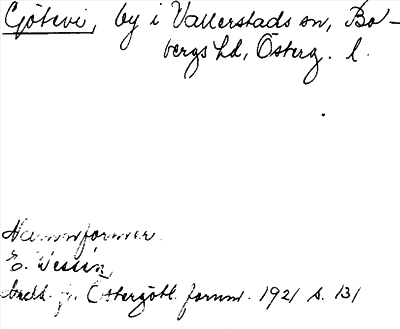 Götevi, by i Vallerstads sn, Bo-
bergs hd, Österg. l.
Namnformer
E. Wessén
Medd. fr. Östergötl. fornm. 1921 s. 131